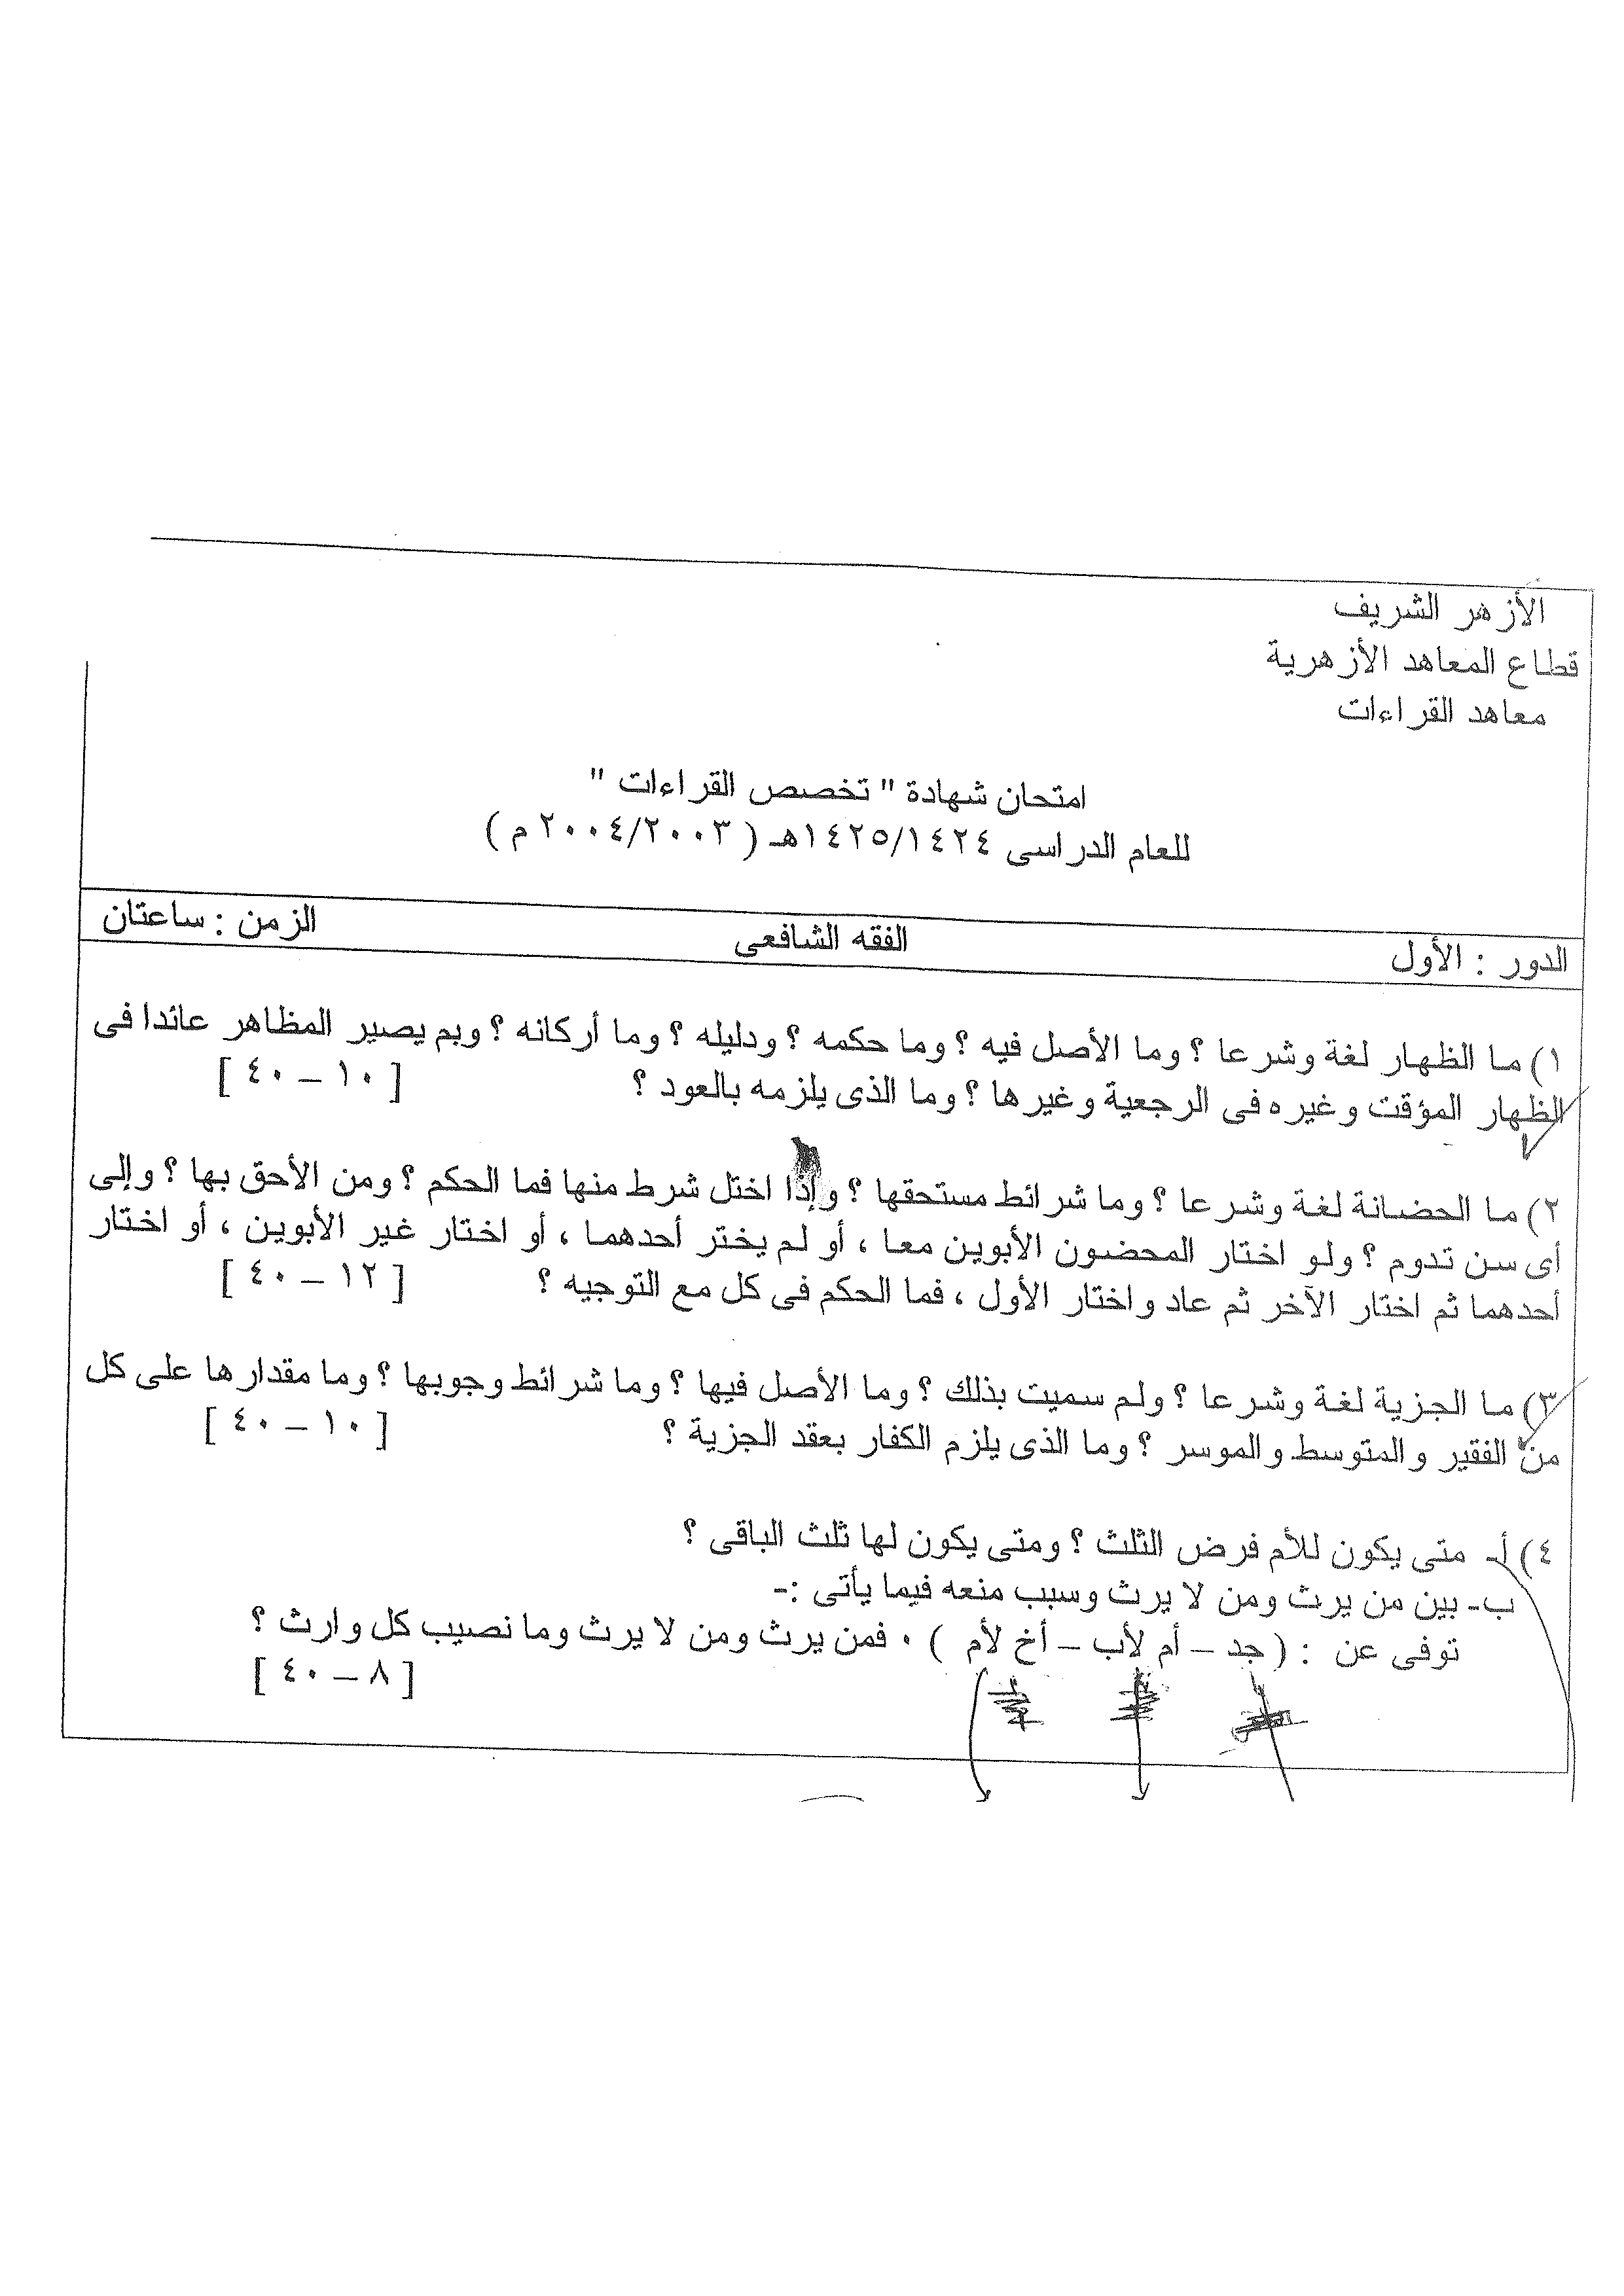 الأزهر الشريف
قطاع المعاهد الأزهرية
معاهد القراءات
امتحان شهادة " تخصص القراءات "
للعام الدراسى ١٤٢٥/١٤٢٤هـ ( ٢٠٠٤/٢٠٠٣ م )
الدور : الأول الفقه الشافعى الزمن : ساعتان
١) ما الظهار لغة وشرعا ؟ وما الأصل فيه ؟ وما حكمه ؟ ودليله ؟ وما أركانه ؟ وبم يصير المظاهر عائدا فى
الظهار المؤقت وغيره فى الرجعية وغيرها ؟ وما الذى يلزمه بالعود ؟ [ ١٠ – ٤٠ ]
٢) ما الحضانة لغة وشرعا ؟ وما شرائط مستحقها ؟ وإذا اختل شرط منها فما الحكم ؟ ومن الأحق بها ؟ وإلى
أى سن تدوم ؟ ولو اختار المحضون الأبوين معا ، أو لم يختر أحدهما ، أو اختار غير الأبوين ، أو اختار
أحدهما ثم اختار الآخر ثم عاد واختار الأول ، فما الحكم فى كل مع التوجيه ؟ [ ١٢ – ٤٠ ]
٣) ما الجزية لغة وشرعا ؟ ولم سميت بذلك ؟ وما الأصل فيها ؟ وما شرائط وجوبها ؟ وما مقدارها على كل
من الفقير والمتوسط والموسر ؟ وما الذى يلزم الكفار بعقد الجزية ؟ [ ١٠ – ٤٠ ]
٤) أ- متى يكون للأم فرض الثلث ؟ ومتى يكون لها ثلث الباقى ؟
ب- بين من يرث ومن لا يرث وسبب منعه فيما يأتى :-
توفى عن : ( جد – أم لأب – أخ لأم ) ٠ فمن يرث ومن لا يرث وما نصيب كل وارث ؟
[ ٨ – ٤٠ ]